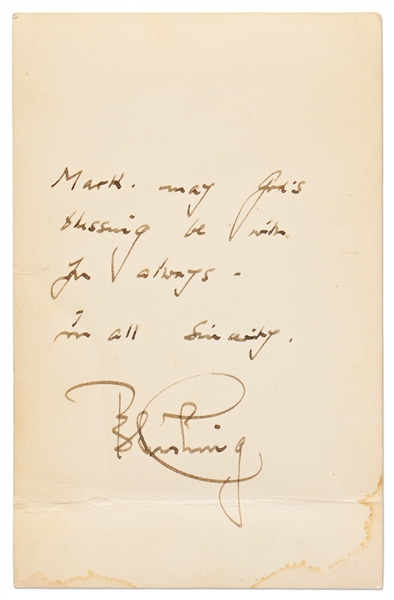 Mark. may God's
blessing be with
you always -
in all Sincerity.
Cushing